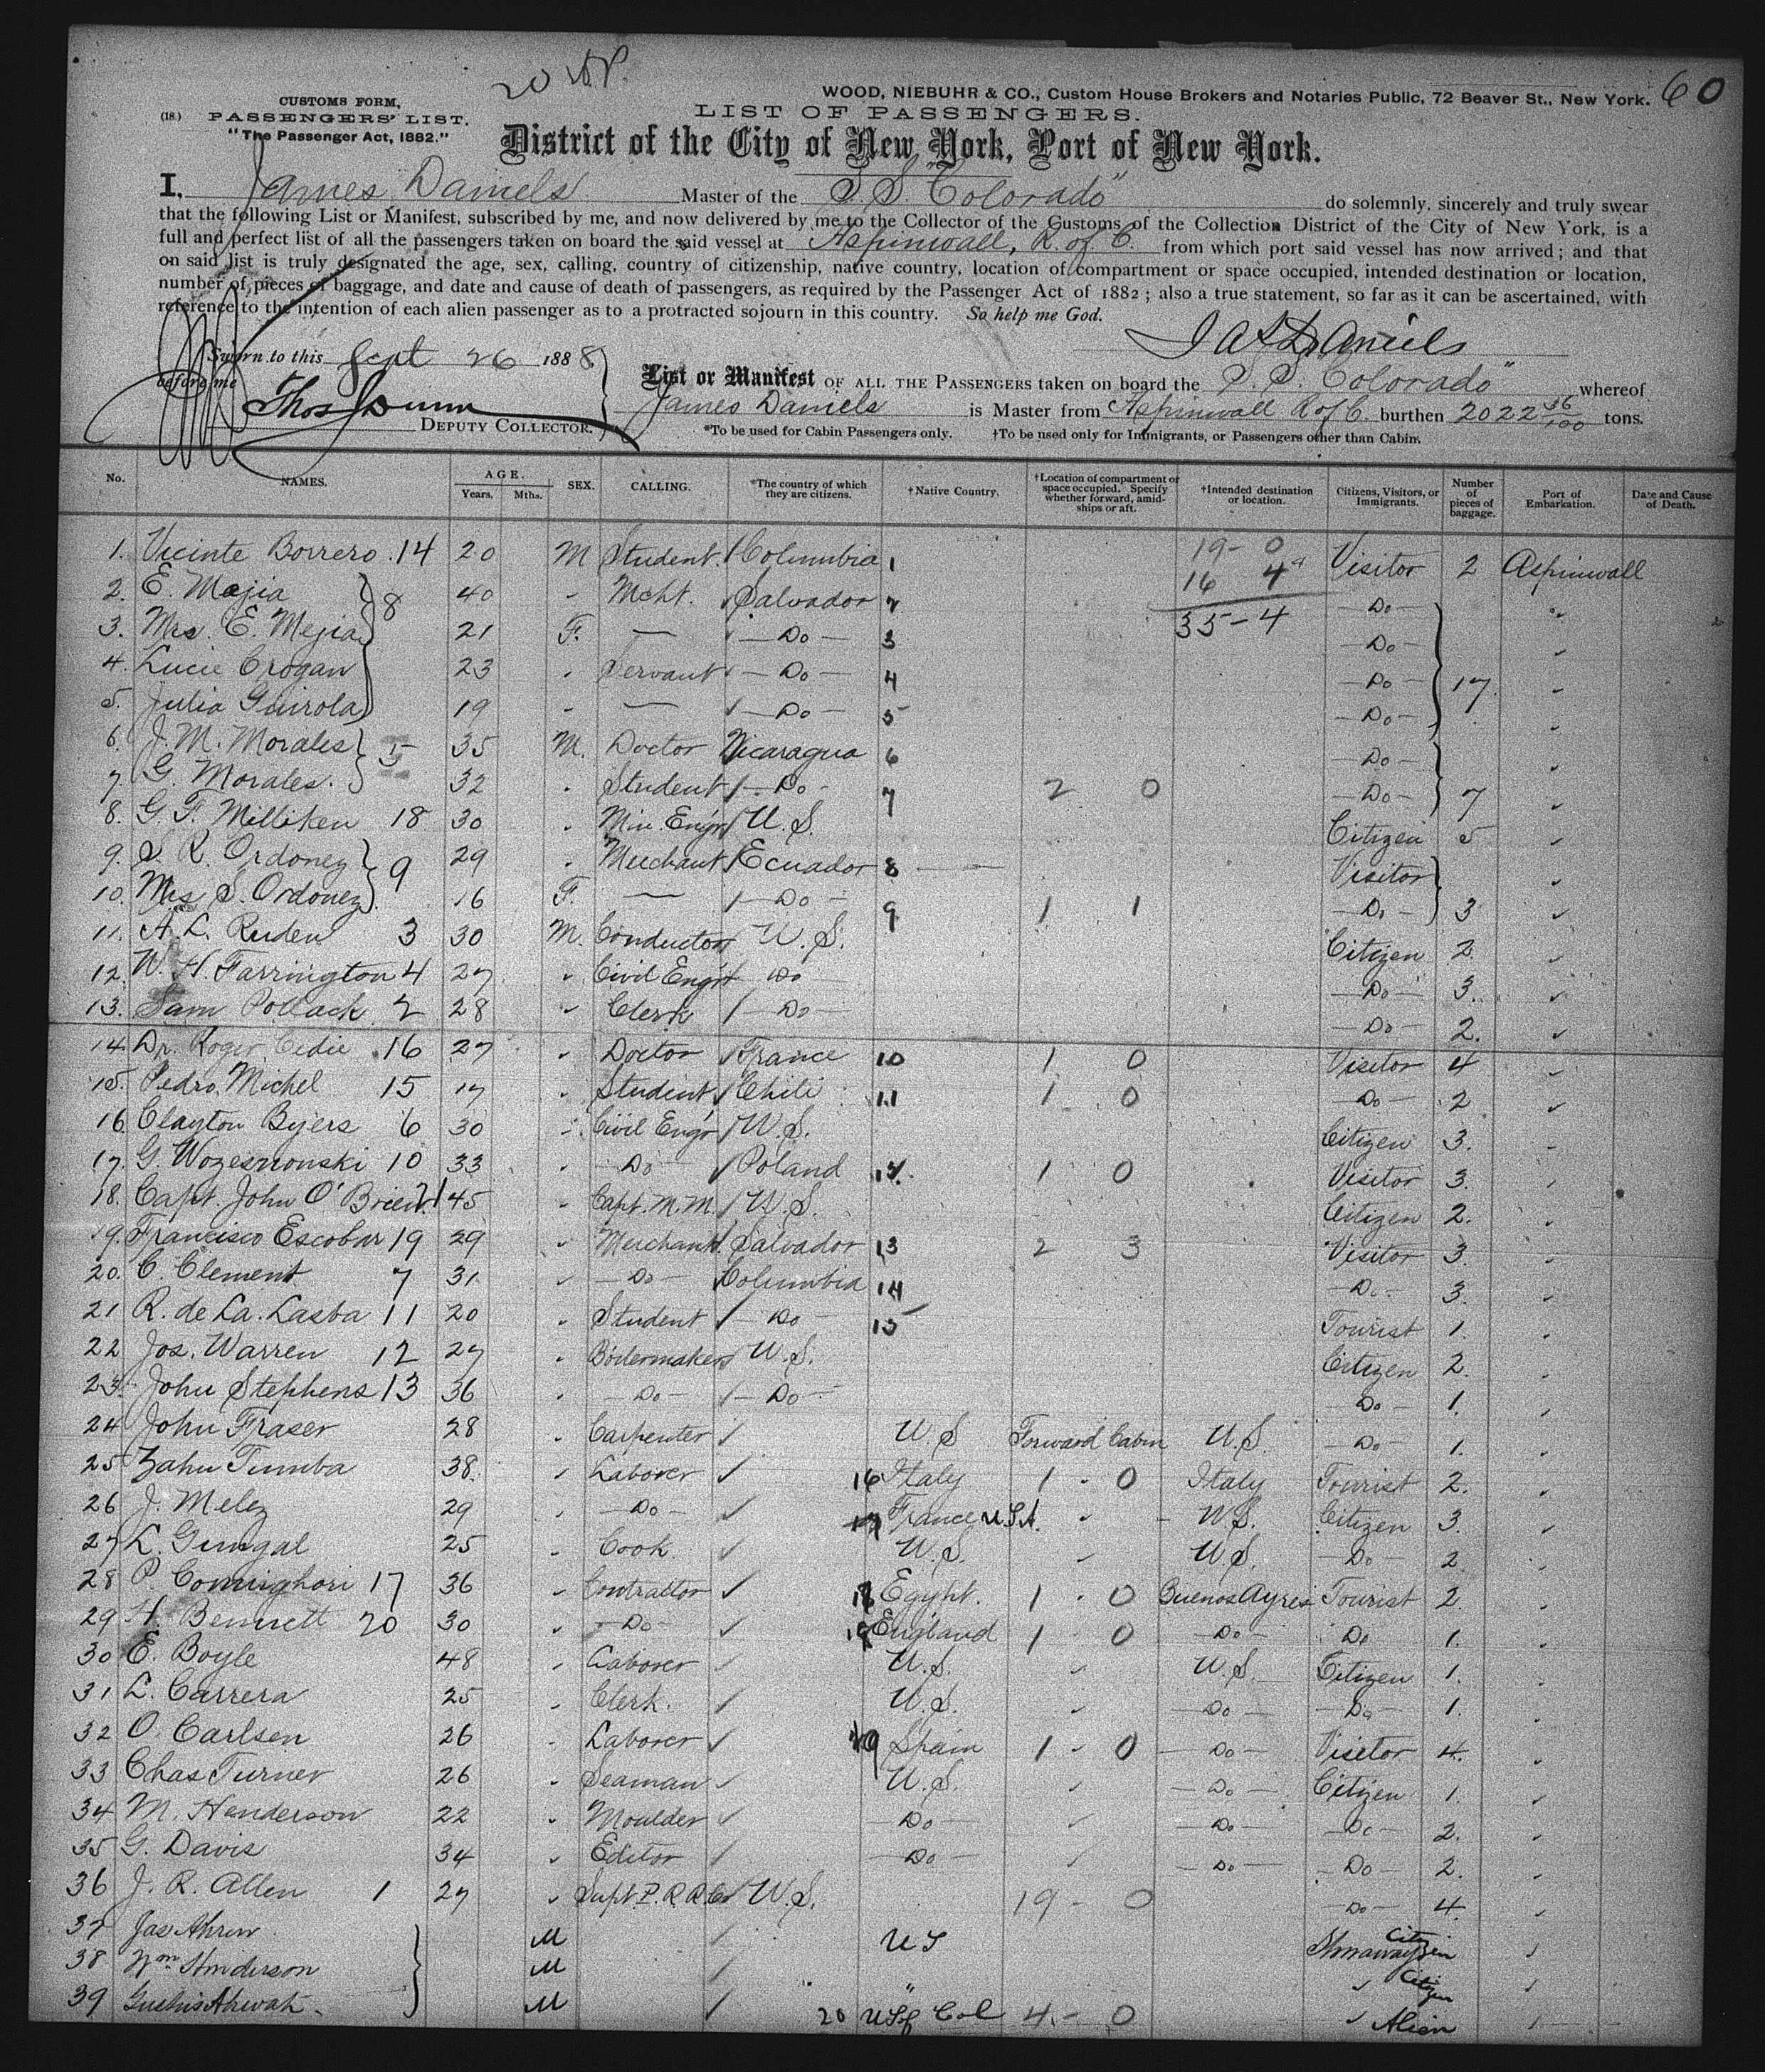 20
60
WOOD, NIEBUHR & CO., Custom House Brokers and Notaries Public, 72 Beaver St., New York.
(18.) CUSTOMS FORM,
PASSENGERS' LIST.
"The Passenger Act, 1882."
LIST OF PASSENGERS.
District of the City of New York, Port of New York.
I, James Daniels Master of the S.S. "Colorado" do solemnly, sincerely and truly swear
that the following List or Manifest, subscribed by me, and now delivered by me to the Collector of the Customs of the Collection District of the City of New York, is a
full and perfect list of all the passengers taken on board the said vessel at Aspinwall, R. of C. from which port said vessel has now arrived; and that
on said list is truly designated the age, sex, calling, country of citizenship, native country, location of compartment or space occupied, intended destination or location,
number of pieces of baggage, and date and cause of death of passengers, as required by the Passenger Act of 1882; also a true statement, so far as it can be ascertained, with
reference to the intention of each alien passenger as to a protracted sojourn in this country. So help me God.
Jas Daniels
Sworn to this Sept 26 1888
before me
Thos Dunn
DEPUTY COLLECTOR.
List or Manifest OF ALL THE PASSENGERS taken on board the S.S. "Colorado" whereof
James Daniels is Master from Aspinwall R of C. burthen 2022 36/100 tons.
*To be used for Cabin Passengers only. †To be used only for Immigrants, or Passengers other than Cabin.
No. NAMES. AGE. Years. Mths. SEX. CALLING. *The country of which they are citizens. †Native Country. †Location of compartment or space occupied. Specify whether forward, amidships or aft. †Intended destination or location. Citizens, Visitors, or Immigrants. Number of pieces of baggage. Port of Embarkation. Date and Cause of Death.
19 - 0
16 4
35 - 4
1. Vicinte Borrero 14 20 M Student Columbia 1 Visitor 2 Aspinwall
2. E. Mejia 8 40 " Mcht. Salvador 2 Do "
3. Mrs. E. Mejia 21 F. — Do 3 Do "
4. Lucie Crogan 23 " Servant Do 4 Do 17 "
5. Julia Guirola 19 " — Do 5 Do "
6. J. M. Morales 5 35 M. Doctor Nicaragua 6 Do "
7. G. Morales. 32 " Student Do 7 2 0 Do 7 "
8. G. F. Milliken 18 30 " Min. Engr U.S. Citizen 5 "
9. S. R. Ordonez 9 29 " Merchant Ecuador 8 Visitor "
10. Mrs S. Ordonez 16 F. — Do 9 1 1 Do 3 "
11. A. L. Ruden 3 30 M. Conductor U.S. Citizen 2 "
12. W. H. Farrington 4 27 " Civil Engr Do Do 3. "
13. Sam Pollack 2 28 " Clerk Do Do 2. "
14. Dr. Roger Cedie 16 27 " Doctor France 10 1 0 Visitor 4 "
15. Pedro Michel 15 17 " Student Chili 11 1 0 Do 2 "
16. Clayton Byers 6 30 " Civil Engr U.S. Citizen 3. "
17. G. Wozesnonski 10 33 " Do Poland 1 0 Visitor 3. "
18. Capt. John O'Brien 45 " Capt. M.M. U.S. Citizen 2. "
19. Francisco Escobar 19 29 " Merchant Salvador 13 2 3 Visitor 3. "
20. C. Clement 7 31 " Do Columbia 14 Do 3. "
21 R. de La. Lasba 11 20 " Student Do 15 Tourist 1. "
22 Jos. Warren 12 27 " Boilermaker U.S. Citizen 2. "
23. John Stephens 13 36 " Do Do Do 1. "
24 John Fraser 28 " Carpenter U.S Forward Cabin U.S. Do 1. "
25 Zahu Tumba 38. " Laborer 16 Italy 1 - 0 Italy Tourist 2. "
26 J. Melez 29 " Do 17 France U.S.A. " U.S. Citizen 3. "
27 L. Gungal 25 " Cook. U.S. " U.S. Do 2 "
28 P. Conighori 17 36 " Contractor Egypt. 1 - 0 Buenos Ayres Tourist 2. "
29 H. Bennett 20 30 " Do England 1 0 Do Do 1. "
30 E. Boyle 48 " Laborer U.S. " U.S. Citizen 1. "
31 L. Carrera 25 " Clerk. U.S. " Do Do 1. "
32 O. Carlsen 26 " Laborer 19 Spain 1 - 0 Do Visitor 4. "
33 Chas Turner 26 " Seaman U.S. " Do Citizen 1. "
34 M. Henderson 22 " Moulder Do " Do Do 2. "
35 G. Davis 34 " Editor Do " Do Do 2. "
36 J. R. Allen 1 27 " Supt. P.R.R.Co U.S. 19 - 0 Do 4. "
37 Jas Ahren M U S Stowaway Citizen "
38 Wm Henderson M " " Citizen "
39 M 20 U S of Col 4 - 0 " Alien